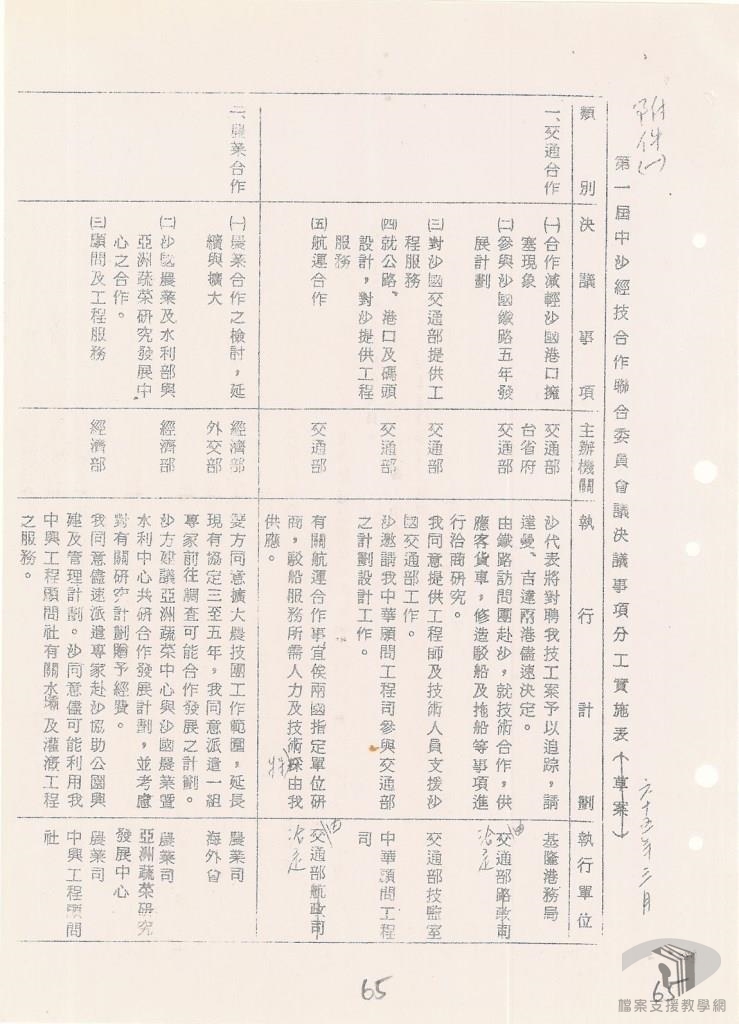 附件(一)
第一屆中沙經技合作聯合委員會議決議事項分工實施表(草案)
六十五年三月
類別
決議事項
主辦機關
執行計劃
執行單位
一、交通合作
㈠合作減輕沙國港口擁
塞現象
交通部
台省府
沙代表將對聘我技工案予以追踪，請
達曼、吉達兩港儘速決定。
基隆港務局
㈡參與沙國鐵路五年發
展計劃
交通部
由鐵路訪問團赴沙，就技術合作，供
應客貨車，修造駁船及拖船等事項進
行洽商研究。
交通部路政司
由
洽定
㈢對沙國交通部提供工
程服務
交通部
我同意提供工程師及技術人員支援沙
國交通部工作。
交通部技監室
㈣就公路、港口及碼頭
設計，對沙提供工程
服務
交通部
沙邀請我中華顧問工程司參與交通部
之計劃設計工作。
中華顧問工程
司
㈤航運合作
交通部
有關航運合作事宜俟兩國指定單位研
商，駁船服務所需人力及技術採由我
供應。
交通部航政司
由
洽定
二、農業合作
㈠農業合作之檢討，延
續與擴大
經濟部
外交部
雙方同意擴大農技團工作範圍，延長
現有協定三至五年，我同意派遣一組
專家前往調查可能合作發展之計劃。
農業司
海外會
㈡沙國農業及水利部與
亞洲蔬菜研究發展中
心之合作。
經濟部
沙方建議亞洲蔬菜中心與沙國農業暨
水利中心共研合作發展計劃，並考慮
對有關研究計劃贈予經費。
農業司
亞洲蔬菜研究
發展中心
㈢顧問及工程服務
經濟部
我同意儘速派遣專家赴沙協助公園興
建及管理計劃。沙同意儘可能利用我
中興工程顧問社有關水壩及灌溉工程
之服務。
農業司
中興工程顧問
社
65
65
檔案支援教學網